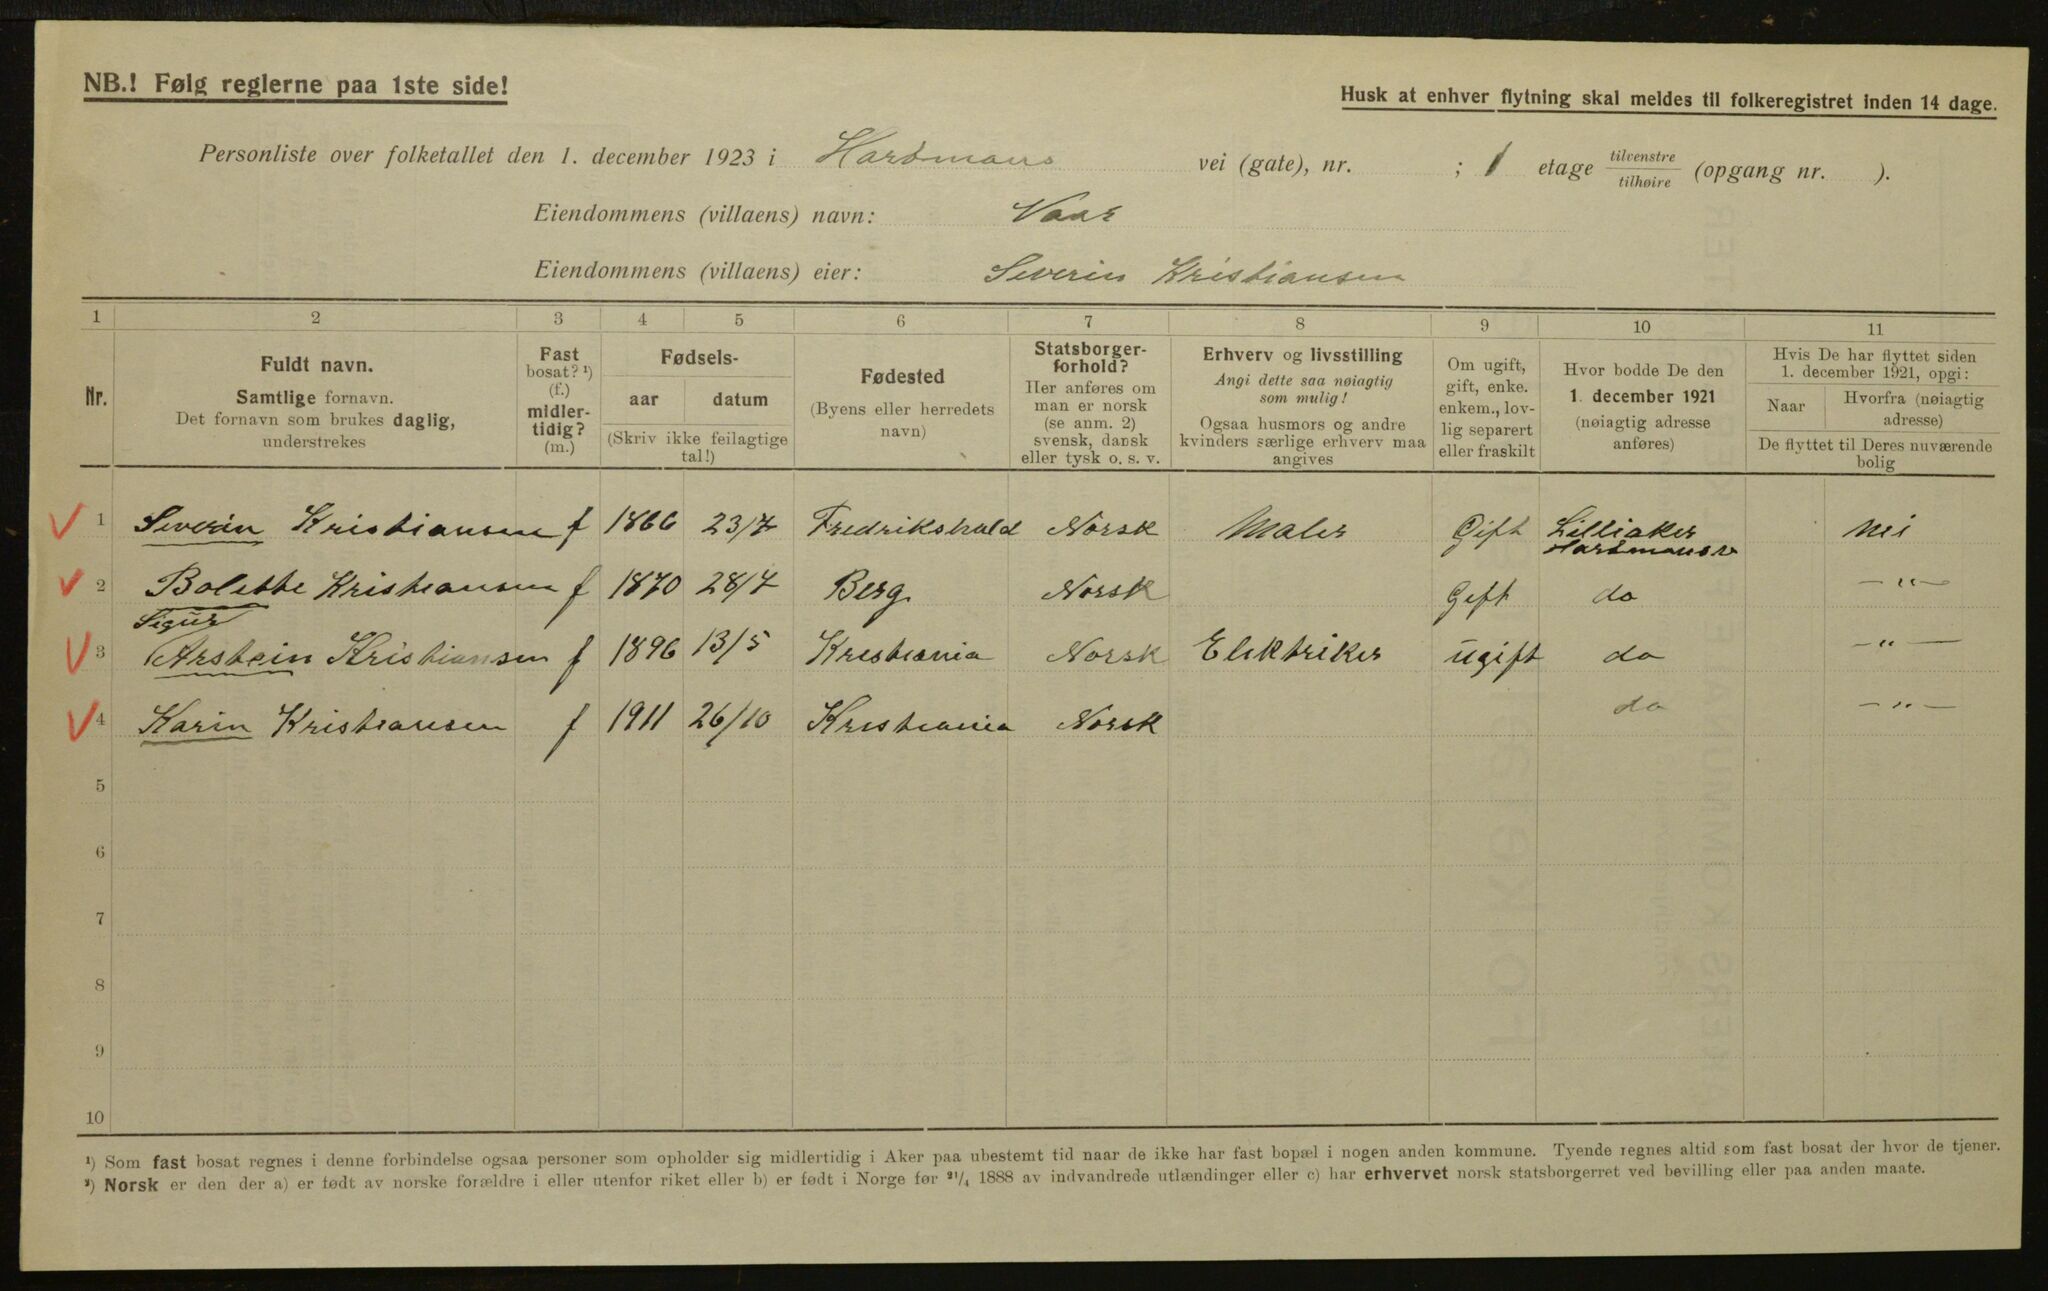 NB.! Følg reglerne paa 1ste side!
Husk at enhver flytning skal meldes til folkeregistret inden 14 dage.
Personliste over folketallet den 1. december 1923 i Hartmans vei (gate), nr. ; 1 etage tilvenstre / tilhøire (opgang nr. ).
Eiendommens (villaens) navn: Vaar
Eiendommens (villaens) eier: Severin Kristiansen
1 2 3 4 5 6 7 8 9 10 11
Nr.
Fuldt navn.
Samtlige fornavn.
Det fornavn som brukes daglig,
understrekes
Fast
bosat? ¹)
(f.)
midler-
tidig?
(m.)
Fødsels-
aar datum
(Skriv ikke feilagtige
tal!)
Fødested
(Byens eller herredets
navn)
Statsborger-
forhold?
Her anføres om
man er norsk
(se anm. 2)
svensk, dansk
eller tysk o. s. v.
Erhverv og livsstilling
Angi dette saa nøiagtig
som mulig!
Ogsaa husmors og andre
kvinders særlige erhverv maa
angives
Om ugift,
gift, enke.
enkem., lov-
lig separert
eller fraskilt
Hvor bodde De den
1. december 1921
(nøiagtig adresse
anføres)
Hvis De har flyttet siden
1. december 1921, opgi:
Naar
Hvorfra (nøiagtig
adresse)
De flyttet til Deres nuværende
bolig
1 Severin Kristiansen f 1866 23/7 Fredrikshald Norsk Maler Gift Lilliaker nei
Hartmansv
2 Bolette Kristiansen f 1870 28/7 Berg Norsk Gift do — " —
Sigur
3 Arstein Kristiansen f 1896 13/5 Kristiania Norsk Elektriker ugift do — " —
4 Karin Kristiansen f 1911 26/10 Kristiania Norsk do — " —
5
6
7
8
9
10
¹) Som fast bosat regnes i denne forbindelse ogsaa personer som opholder sig midlertidig i Aker paa ubestemt tid naar de ikke har fast bopæl i nogen anden kommune. Tyende regnes altid som fast bosat der hvor de tjener.
²) Norsk er den der a) er født av norske forældre i eller utenfor riket eller b) er født i Norge før ²¹/₄ 1888 av indvandrede utlændinger eller c) har erhvervet norsk statsborgerret ved bevilling eller paa anden maate.